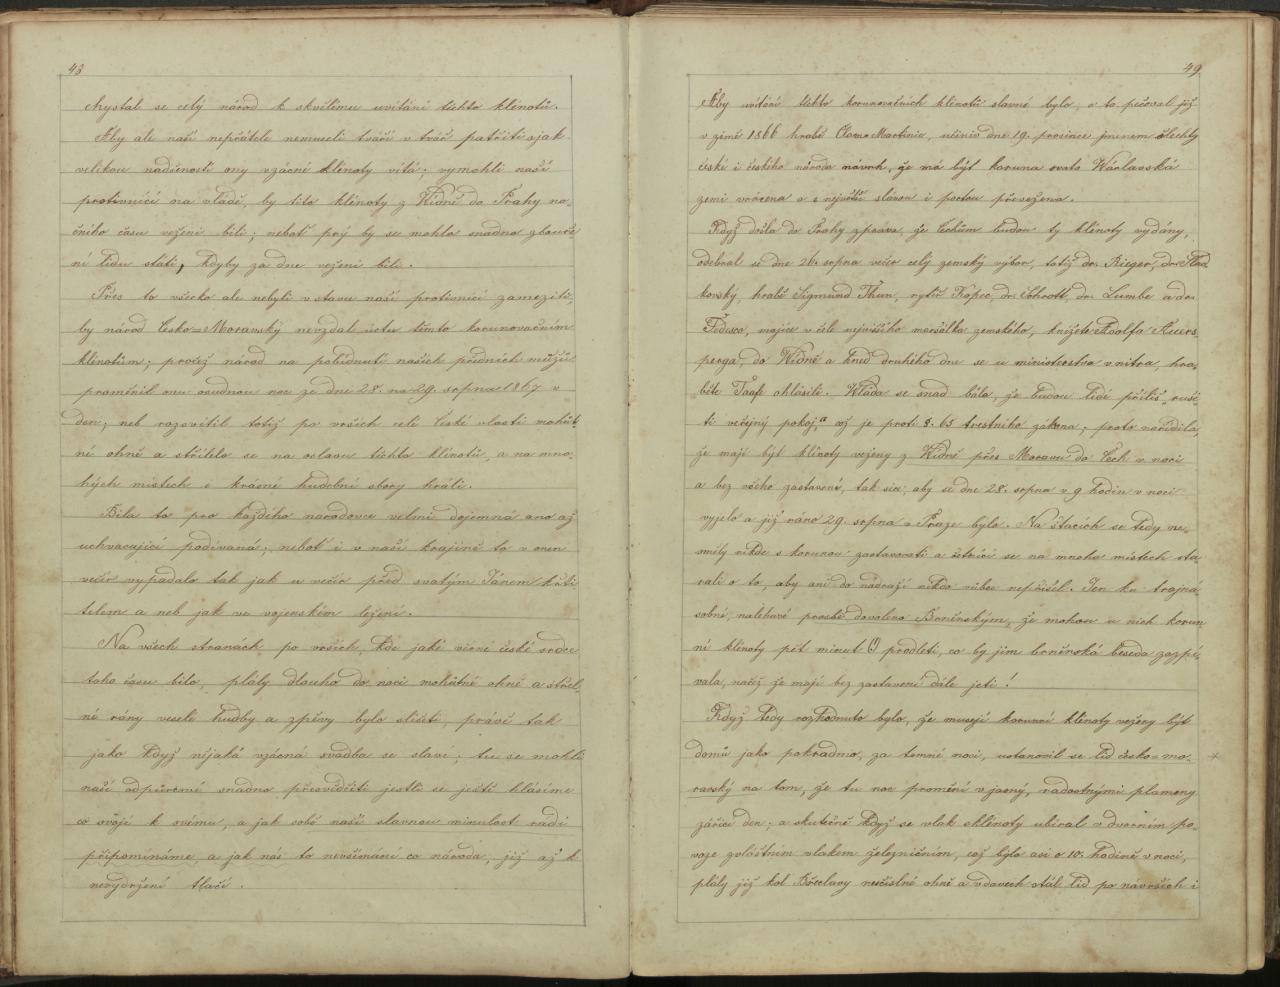 43
chystal se celý národ k skvělému uvítání těchto klenotů.
Aby ale naší nepřátele nemuseli tváří v tvář patřiti s jak
velikou nádšeností ony vzácné klenoty vítá; vymohli naší
protivníci na vládě, by tito klenoty z Wídně do Prahy no-
čního času vezeni bili; neboť prý by se mohlo snadno zbouře
ní lidu státi, kdyby za dne vezeni bili.
Přes to všecko ale nebyli v stavu naší protivníci zameziti,
by národ Česko=Moravský nevzdal úctu těmto korunovačním
klenotům; pročež národ na pobídnutí našich předních mužů
proměnil onu osudnou noc ze dne 28. na 29. srpna 1867 v
den; neb rozsvítil totiž po vrších celé České vlasti mohút-
né ohně a střílelo se na oslavu těchto klenotů, a na mno-
hých místech i krásné hudební sbory hráli.
Bila to pro každého národovce velmi dojemná ano až
uchvacující podívaná; neboť i v naší krajině to v onen
večer vypadalo tak jak u večer před svatým Jánem křti-
telem a neb jak ve vojenském ležení.
Na všech stranách, po vrších, kde jaké věrné české srdce
toho času bilo, pláły dlouho do noci mohútné ohně a střel-
né rány veselé hudby a zpěvy bylo slišeti, právě tak
jako když nějaká vzácná svadba se slaví; tu se mohli
naší odpůrcové snadno přesvědčiti jestli se ještě hlásíme
co svoji k svému, a jak sobě naší slavnou minulost rádi
připomínáme, a jak nás to nevšímání co národa, již až k
nevydržení tlačí.
49
Aby uvítání těchto korunovačních klenotů slavné bylo, o to pečoval již
v zimě 1866 hrabě Clam=Martinic, učiniv dne 19. prosince jmenem šlechty
české i českého národa návrh, že má být koruna svato Wáclavská
zemi vrácena a s největší slávou i poctou přivezena.
Když došla do Prahy zpráva, že Čechům budou ty klenoty vydány,
odebral se dne 26. srpna večer celý zemský výbor, totiž dr. Rieger, dr. Slad
kovský, hrabě Sigmund Thun, rytíř Kopec, dr. Schrott, dr. Lumbe a dr.
Tedesco, majíce v čele nejvišího maršálka zemského, knížete Adolfa Auers-
perga, do Wídně a hned druhého dne se u ministerstva vnitra, hra-
běte Taafe ohlásili. Wláda se snad bála, že budou lidé příliš „ruši-
ti veřejný pokoj," což je proti §. 65 trestního zákona; proto nařídila,
že mají být klenoty vezeny z Wídně přes Moravu do Čech v noci
a bez všeho zastavení, tak sice, aby se dne 28. srpna v 9 hodin v noci
vyjelo a již ráno 29. srpna v Praze bylo. Na štacích se tedy ne-
směly nikde s korunou zastavovati a četníci se na mnoha místech sta-
rali o to, aby ani do nádraží nikdo vůbec nepřišel. Jen ku trojná-
sobné, naléhavé prosbě dovoleno Brněnským, že mohou u nich korun
ní klenoty pět minut (!) prodleti, co by jim brněnská beseda zazpí-
vala, načež že mají bez zastavení dále jeti!
Když tedy rozhodnuto bylo, že musejí korunní klenoty vezeny být
domů jako pokradmo, za temné noci, ustanovil se lid česko=mo-
ravský na tom, že tu noc promění v jasný, radostnými plameny
zářící den; a skutečně když se vlak s klenoty ubíral v dvorním po-
voze zvláštním vlakem železničním, což bylo asi o 10. hodině v noci,
pláły již kol Břeclavy nesčíslné ohně a v davech stál lid po návrších i